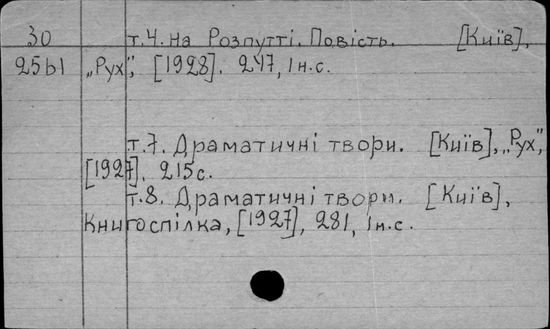 30 т.4. На Розпутті. Повість. [Київ],
25Ы „Рух", [1928]. 247, 1н.с.
т.7. Драматичні твори. [Київ], „Рух",
[1927]. 215с.
т.8. Драматичні твори. [Київ],
Книгоспілка, [1927], 281, 1н.с.